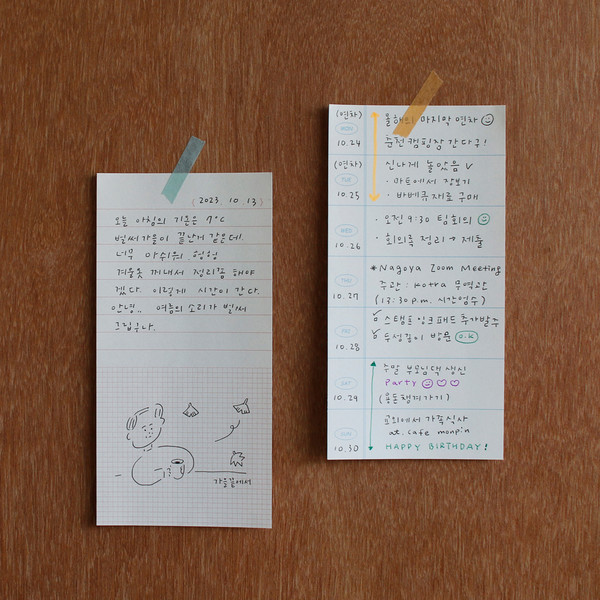 ( 2023 10 13 )
오늘 아침의 기온은 7°C
벌써 가을이 끝난거 같은데.
너무 아쉬워 헝헝
겨울옷 꺼내서 정리좀 해야
겠다. 이렇게 시간이 간다.
안녕.. 여름의 소리가 벌써
그립구나.
가을 끝에서
(연차)
올해의 마지막 연차
MON
10.24
춘천 캠핑장 간다구!
(연차)
신나게 놀았음 V
TUE
· 마트에서 장보기
10.25
· 바베큐 재료 구매
· 오전 9:30 팀회의
WED
10.26
· 회의록 정리 → 제출
*Nagoya Zoom Meeting
THU
주관 : kotra 무역관
10.27
(13:30 p.m. 시간엄수)
스탬프 잉크패드 추가발주
FRI
방문 O.K
10.28
주말 부모님댁 생신
SAT
Party
10.29
(용돈 챙겨가기)
교외에서 가족식사
SUN
at. cafe monpin
10.30
HAPPY BIRTHDAY!